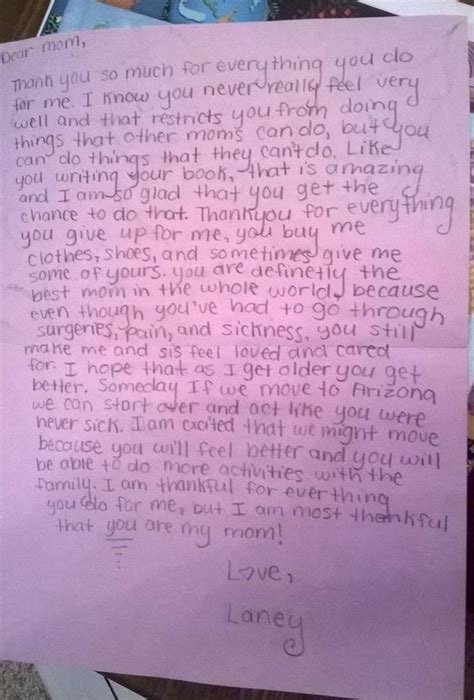 Dear mom,
Thank you so much for everything you do
for me. I know you never really feel very
well and that restricts you from doing
things that other moms can do, but you
can do things that they can't do. Like
you writing your book, that is amazing
and I am so glad that you get the
chance to do that. Thankyou for everything
you give up for me, you buy me
clothes, shoes, and sometimes give me
some of yours. you are definetly the
best mom in the whole world, because
even though you've had to go through
surgeries, pain, and sickness, you still
make me and sis feel loved and cared
for. I hope that as I get older you get
better. Someday If we move to Arizona
we can start over and act like you were
never sick. I am excited that we might move
because you will feel better and you will
be able to do more activities with the
family. I am thankful for everthing
you do for me, but I am most thankful
that you are my mom!
Love,
Laney